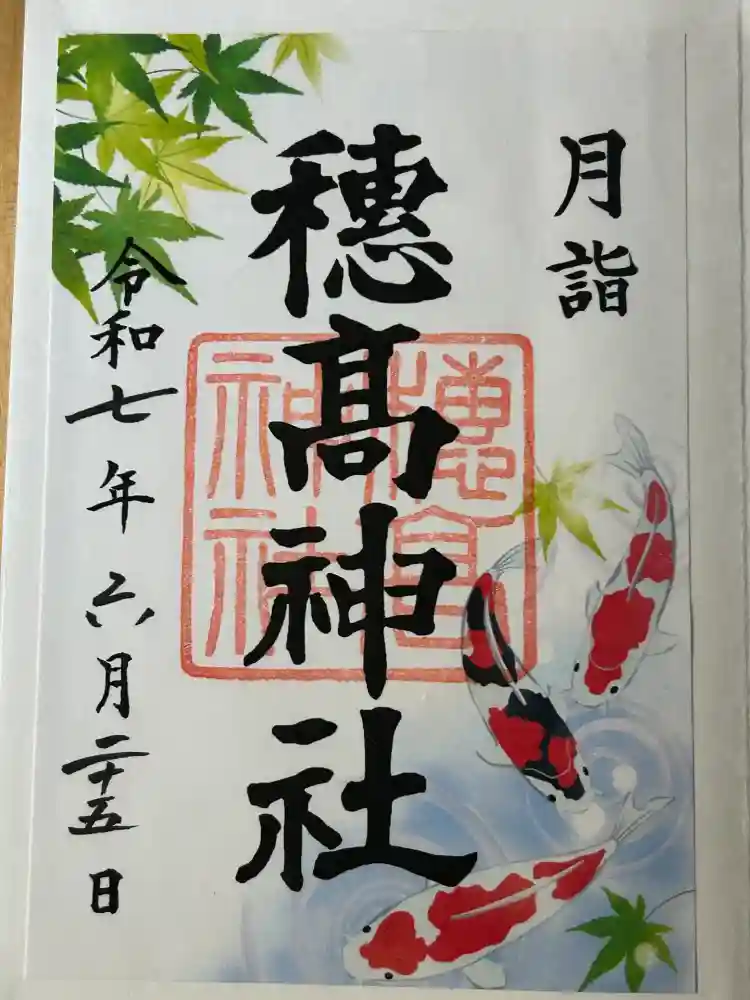 月詣
穂髙神社
穂高神社
令和七年六月二十五日